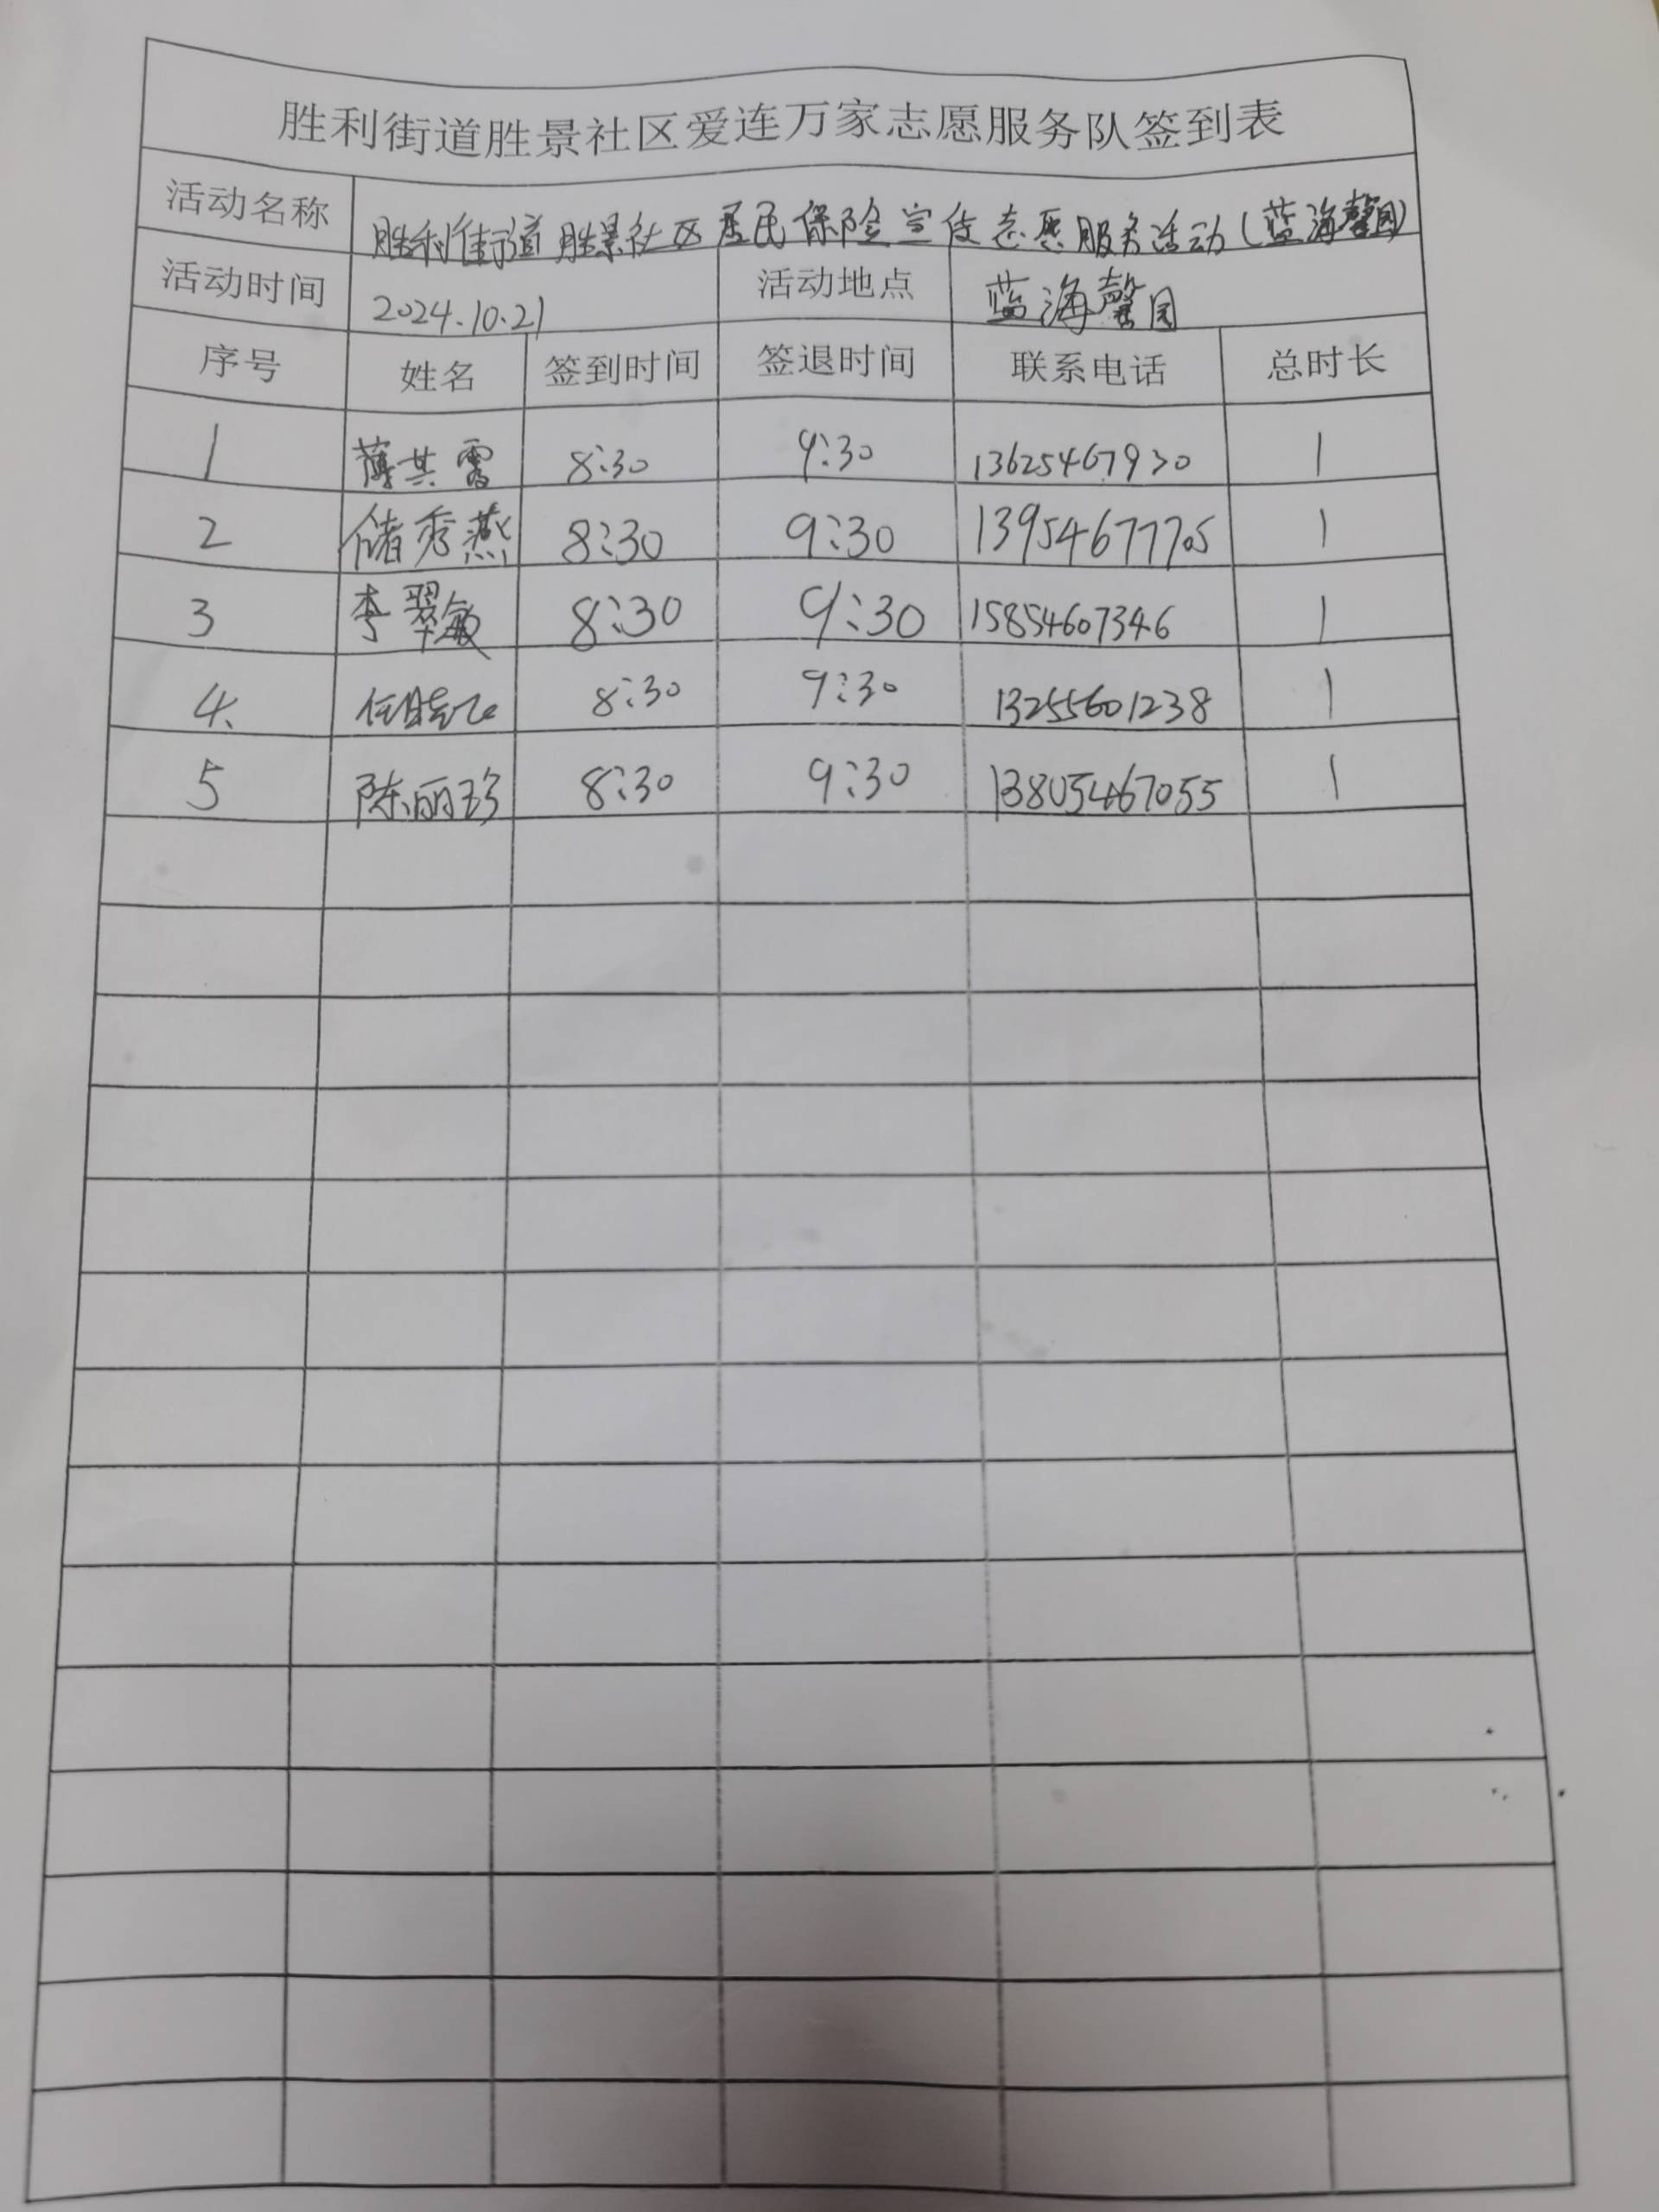 胜利街道胜景社区爱连万家志愿服务队签到表
活动名称 胜利街道胜景社区居民保险宣传志愿服务活动(蓝海馨园)
活动时间 2024.10.21 活动地点 蓝海馨园
序号 姓名 签到时间 签退时间 联系电话 总时长
1 薄其雷 8:30 9:30 13625467930 1
2 储秀燕 8:30 9:30 13954677705 1
3 李翠敏 8:30 9:30 15854607346 1
4. 8:30 9:30 13255601238 1
5 陈丽珍 8:30 9:30 13805467055 1